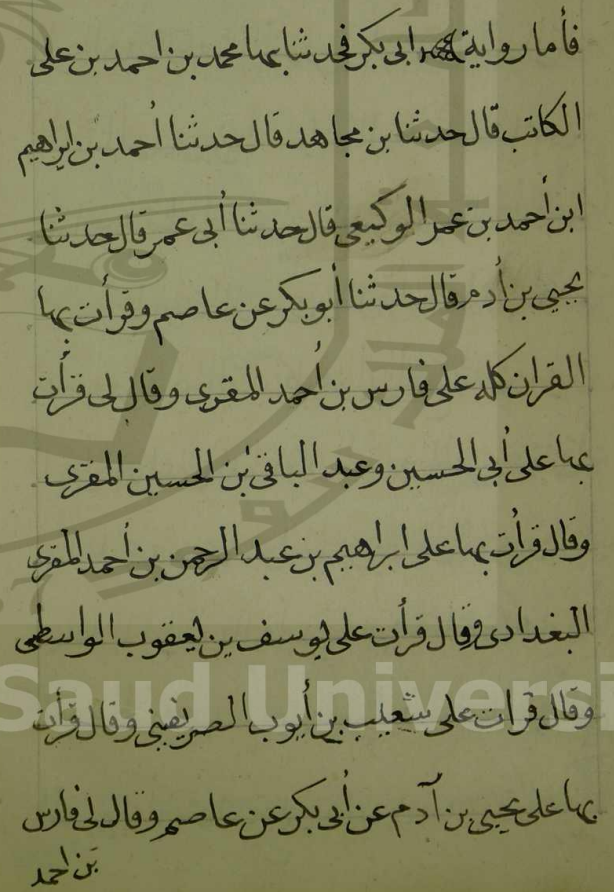 فأما رواية ابى بكر فحدثنا بها محمد بن احمد بن على
الكاتب قال حدثنا بن مجاهد قال حدثنا أحمد بن ابراهيم
ابن أحمد بن عمر الوكيعى قال حدثنا أبى عمر قال حدثنا
يحيى بن أدم قال حدثنا أبو بكر عن عاصم وقرأت بها
القران كله على فارس بن أحمد المقرى وقال لى قرأت
بها على أبى الحسين وعبد الباقى بن الحسين المقرى
وقال قرأت بها على ابراهيم بن عبد الرحمن بن أحمد المقرى
البغدادى وقال قرأت على يوسف بن يعقوب الواسطى
وقال قرات على شعيب بن أيوب الصريفينى وقال قرأت
بها على يحيى بن آدم عن أبى بكر عن عاصم وقال لى فارس
بن احمد
Saud Universi